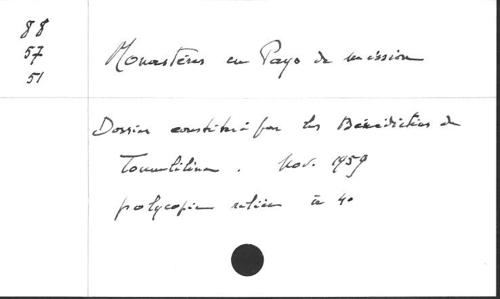 88
57
51
Monastères en Pays de mission
Dossier constitué par les Bénédictins de
Toumliline. Nov. 1959
polycopie reliée in 4°